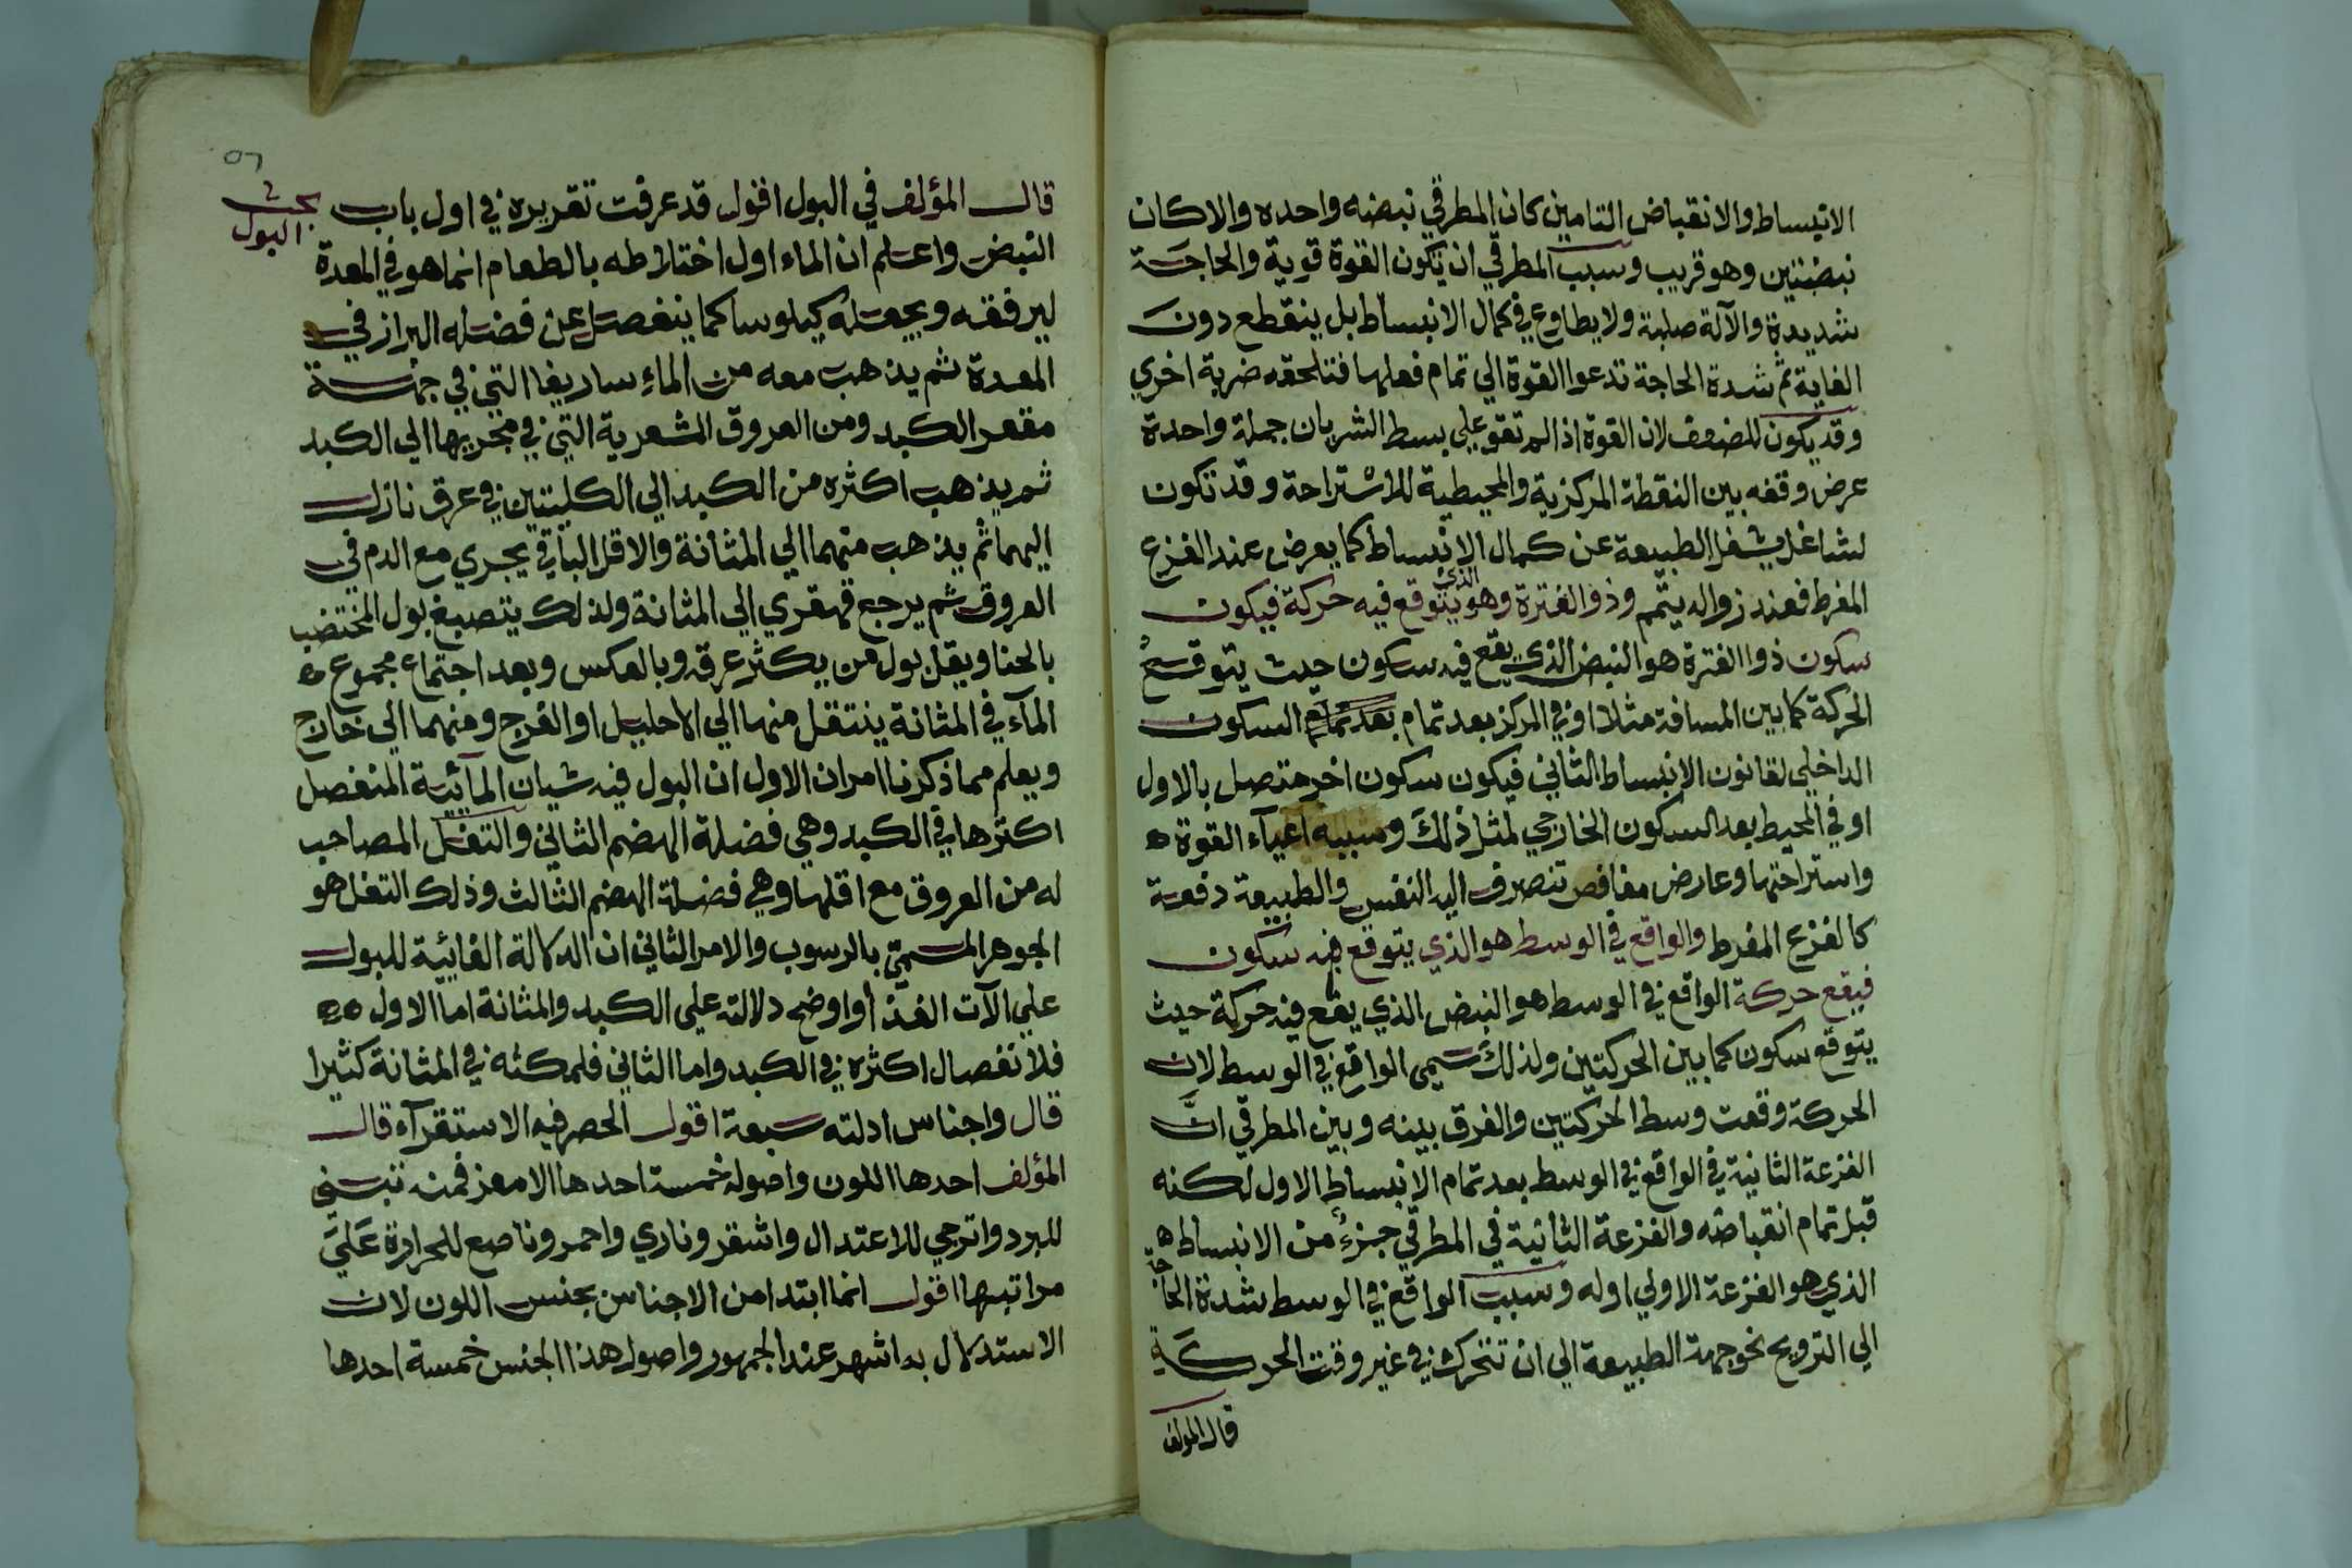 الانبساط والانقباض التامين كان المطرقي نبضه واحده والا كان
نبضتين وهو قريب وسبب المطرقي ان تكون القوة قوية والحاجة
شديدة والآلة صلبة ولا يطاوع في كمال الانبساط بل ينقطع دون
الغاية ثم شدة الحاجة تدعوا القوة الي تمام فعلها فتلحقه ضربة اخري
وقد يكون للضعف لان القوة اذا لم تقو علي بسط الشريان جملة واحدة
عرض وقفه بين النقطة المركزية والمحيطية للاستراحة وقد تكون
لشاغل يشغل الطبيعة عن كمال الانبساط كما يعرض عند الفزع
المفرط فعند زواله يتمم وذو الفترة وهو الذي يتوقع فيه حركة فيكون
سكون ذوا الفترة هو النبض الذي يقع فيه سكون حيث يتوقع
الحركة كما بين المسافة مثلا او في المركز بعد تمام بعد تمام السكون
الداخلي لقانون الانبساط الثاني فيكون سكون اخر متصل بالاول
او في المحيط بعد السكون الخارجي لمثل ذلك وسببه اعيآء القوة ه
واستراحتها وعارض مغافص تنصرف اليه النفس والطبيعة دفعة
كالفزع المفرط والواقع في الوسط هو الذي يتوقع فيه سكون
فيقع حركة الواقع في الوسط هو النبض الذي يقع فيه حركة حيث
يتوقع سكون كما بين الحركتين ولذلك سمي الواقع في الوسط لان
الحركة وقعت وسط الحركتين والفرق بينه وبين المطرقي انَّ
الفزعة الثانية في الواقع في الوسط بعد تمام الانبساط الاول لكنه
قبل تمام انقباضه والفزعة الثانية في المطرقي جزءٌ من الانبساط
الذي هو الفزعة الاولي اوله وسبب الواقع في الوسط شدة الحاجة
الي الترويح نحو جهة الطبيعة الي ان تتحرك في غير وقت الحركة
قال المولف
٥٦
بحث
البول
قال المؤلف في البول اقول قد عرفت تقريره في اول باب
النبض واعلم ان الماء اول اختلاطه بالطعام انما هو في المعدة
ليرققه ويجعله كيلوسا كما ينفصل عن فضله البراز في
المعدة ثم يذهب معه من الماء ساريغا التي في جهة
مقعر الكبد ومن العروق الشعرية التي في مجريها الي الكبد
ثم يذهب اكثره من الكبد الي الكليتين في عرق نازل
اليهما ثم يذهب منهما الي المثانة والاقل الباقي يجري مع الدم في
العروق ثم يرجع قهقري الي المثانة ولذلك يتصبغ بول المختضب
بالحنا ويقل بول من يكثر عرقه وبالعكس وبعد اجتماع مجموع ه
المآء في المثانة ينتقل منها الي الاحليل او الفرج ومنهما الي خارج
ويعلم مما ذكرنا امران الاول ان البول فيه شيان المآئية المنفصل
اكثرها في الكبد وهي فضلة الهضم الثاني والتفل المصاحب
له من العروق مع اقلها وهي فضلة الهضم الثالث وذلك التفل هو
الجوهر المسمي بالرسوب والامر الثاني ان الدلالة الغائية للبول
علي الآت الغذا واوضح دلالته علي الكبد والمثانة اما الاول ه ه
فلانفصال اكثره في الكبد واما الثاني فلمكثه في المثانة كثيرا
قال واجناس ادلته سبعة اقول الحصر فيه الاستقرآء قال
المؤلف احدها اللون واصوله خمسة احدها الاصفر فمنه تبني
للبرد واترجي للاعتدال واشقر وناري واحمر وناصع للحرارة عَليَ
مراتبها اقول انما ابتدا من الاجناس بجنس اللون لان
الاستدلال به اشهر عند الجمهور واصول هذا الجنس خمسة احدها